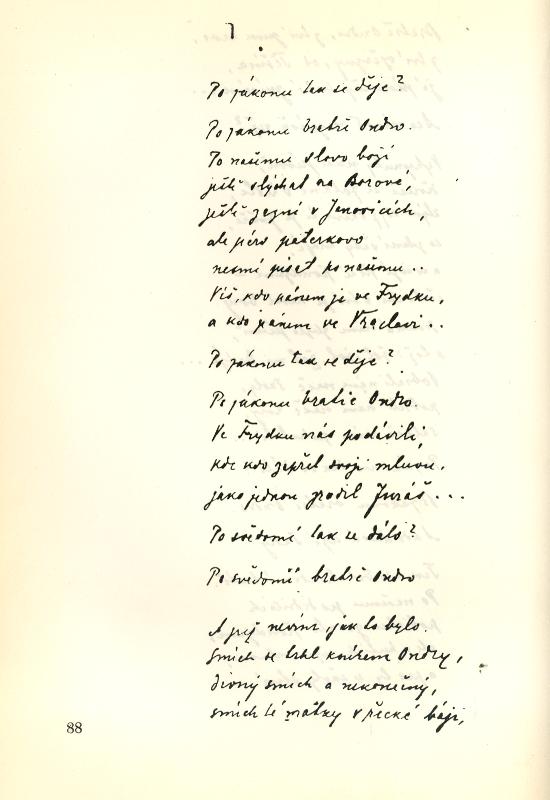 Po zákonu tak se děje?
Po zákonu bratře Ondro.
Po našimu slovo boží
ještě slýchat na Borové,
ještě zazní v Janovicích,
ale péro páterkovo
nesmí písat po našimu..
Víš, kdo pánem je ve Frydku,
a kdo pánem ve Vraclavi..
Po zákonu tak se děje?
Po zákonu bratře Ondro.
Ve Frydku nás podávili,
kde kdo zapřel svoji mluvu,
jako jednou zradil Juráš...
Po svědomí tak se dálo?
Po svědomí bratře Ondro
A než nevím, jak to bylo.
Smích se trhl knížem Ondry,
divný smích a nekonečný,
smích té matky v řecké báji,
88